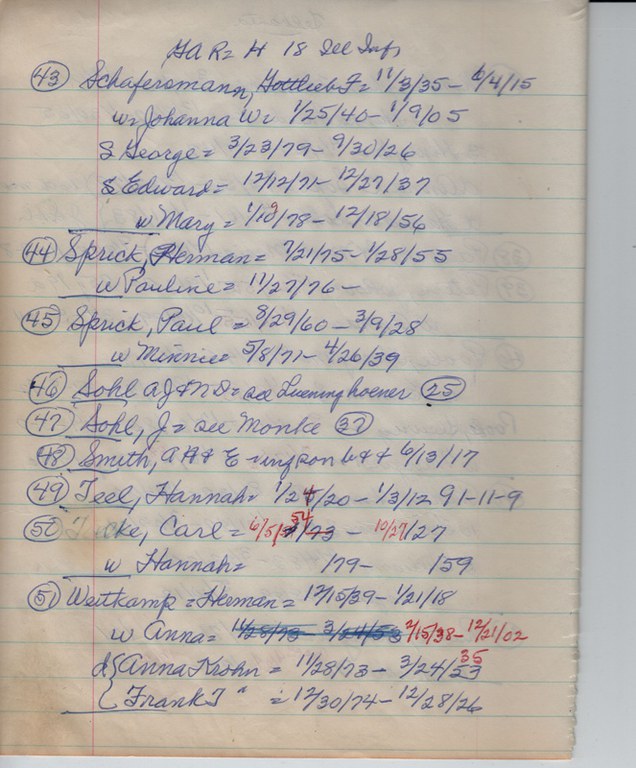 GAR = H 18 See Info
(43) Schafersman, Gottlieb F = 11/3/35 - 6/4/15
w = Johanna W = 1/25/40 - 1/9/05
S George = 3/23/79 - 9/30/26
S Edward = 12/12/71 - 12/27/37
w Mary = 1/19/78 - 12/18/56
(44) Sprick, Herman = 7/21/75 - 1/28/55
w Pauline = 11/27/76 -
(45) Sprick, Paul = 8/29/60 - 3/9/28
w Minnie = 5/8/71 - 4/26/39
(46) Sohl AJ & ND = see Lueninghoener (25)
(47) Sohl, J = see Monke (32)
(48) Smith, AH & E = inf son b & d 6/13/17
(49) Teel, Hannah = 1/24/20 - 1/3/12 91-11-9
(50) Carl = 6/5/54 - 10/27/27
w Hannah = /79 - /59
(51) Weitkamp = Herman = 12/15/39 - 1/21/18
w Anna = 11/28/73 - 3/24/53 2/15/38 - 12/21/02
d { Anna Krohn = 11/28/73 - 3/24/35
{ Frank T " = 12/30/74 - 12/28/26